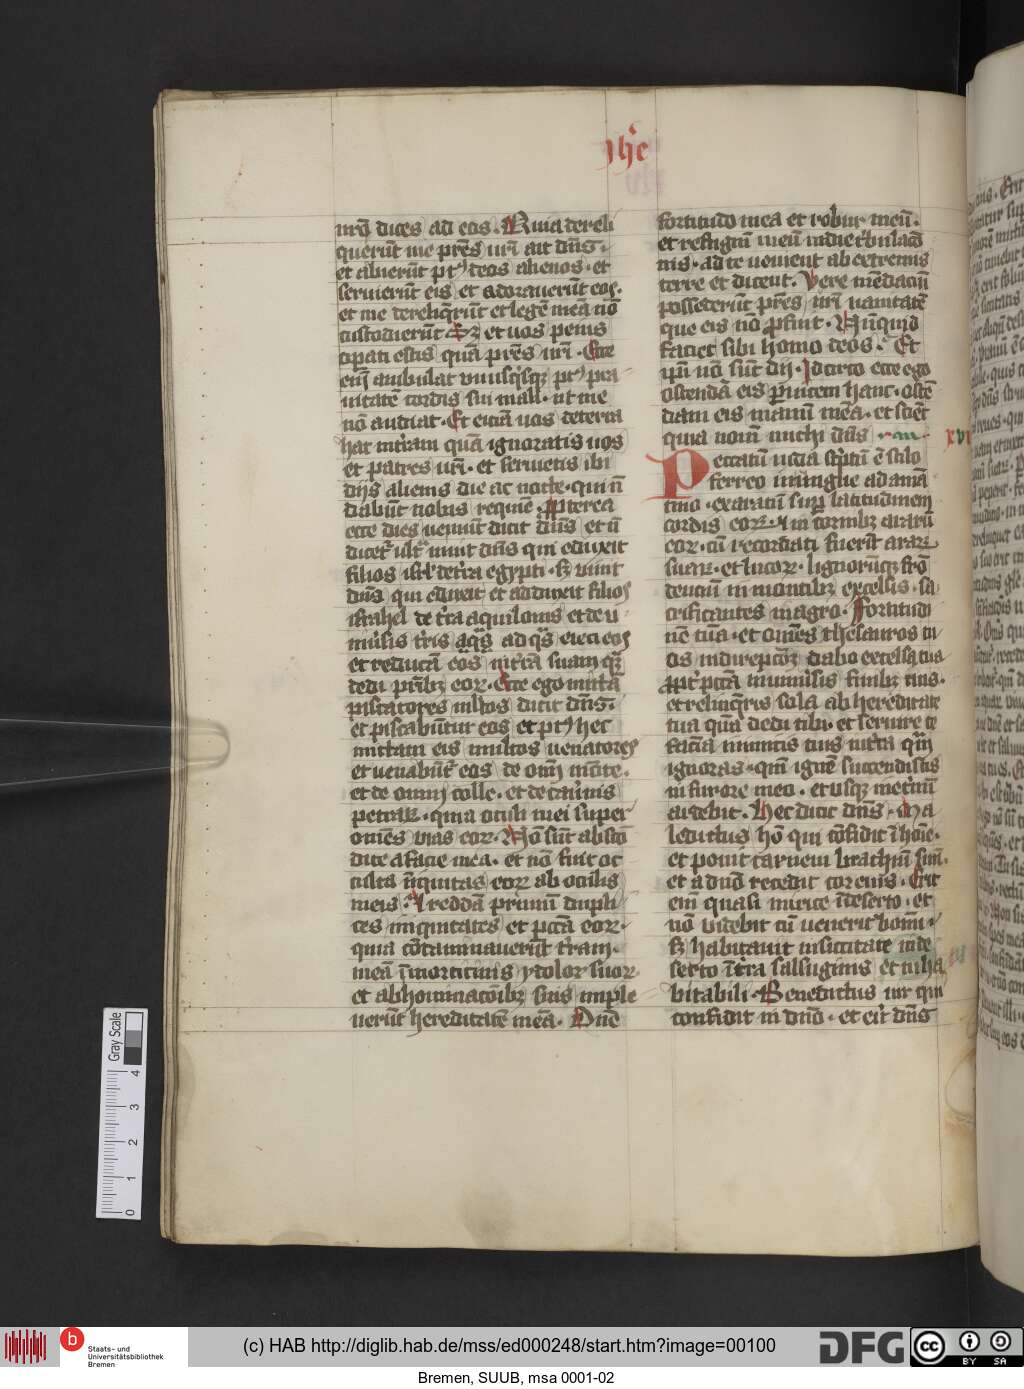 Jhe
nr̄o dices ad eos. Quia dereli
querūt me pr̄es ur̄i ait dn̄s.
et abierūt pt9 deos alienos. et
seruierūt eis et adorauerūt eos.
et me dereliq̄rūt et legē meā nō
custodierūt Sꝫ et uos peius
opati estis quā pr̄es ur̄i. Ecce
eni̅ ambulat vnusq̇sqꝫ pt9 pra
uitatē cordis sui mali. ut me
nō audiat. Et eiciā uos de terra
hac in tr̄am quā ignoratis uos
et patres ur̄i. et seruietis ibi
diis alienis die ac nocte. qui n̄
dabūt uobis requiē. Ꝓpterea
ecce dies ueniūt dicit dn̄s et n̄
dicet᷑ ult᷑ uiuit dn̄s qui eduxit
filios isrl̄ de tr̄a egypti. sꝫ viuit
dn̄s qui eduxit et adduxit filios
israhel de tr̄a aquilonis et de u
niu̅sis tr̄is ad q̄s eieci eos
et reducā eos in tr̄rā suam quā
dedi pr̄ibꝫ eoꝝ. Ecce ego mittā
piscatores ml̄tos dicit dn̄s.
et piscabūtur eos et pt9 hec
mittam eis multos uenatores
et uenabūt᷑ eos de om̄i mōte.
et de omni colle. et de cau̅nis
petraꝝ. quia oculi mei super
omēs vias eoꝝ. Nō sūt abscō
dite a facie mea. et nō fuit oc
culta iniquitas eoꝝ ab oculis
meis. Et reddam primū dupli
ces iniquitates et pcc̄ā eoꝝ.
quia cōtaminauerūt tr̄am
meā ī morticinis ydoloꝝ suoꝝ
et abhominacōibꝫ suis imple
uerūt hereditatē meā. Dn̄e
fortitudo mea et robur meū.
et refugiū meū in die t̄bulacō
nis. ad te uenient ab extremis
terre et dicent. Vere mēdaciū
possederūt pr̄es nr̄i uanitatē
que eis nō ꝓfuit. Nūnquid
faciet sibi homo deos. Et
ip̄i nō sūt dii. Idcirco ecce ego
ostendā eis ꝑ uicem hanc. ostē
dam eis manū meā. et sciēt
quia nomē michi dn̄s xvii
Peccatū iuda sc̄ptū ē stilo
ferreo in ungue adamā
tino. exaratū suꝑ latitudinem
cordis eoꝝ. et in cornibꝫ ararū
eoꝝ. cū recordati fuerīt araꝝ
suaꝝ. et lucoꝝ. lignorūqꝫ frō
dentiū in montibꝫ excelsis. sa
crificantes in agro. Fortitudi
nē tuā. et omēs thesauros tu
os in direpcōeꝫ dabo excelsa tua
ꝓpt᷑ pcc̄ā in uniu̅sis finibꝫ tuis.
et relinq̄ris sola ab hereditate
tua quā dedi tibi. et seruire te
faciā inimicis tuis in tr̄ra quā
ignoras. qm̄ ignē succendisti
in furore meo. et usqꝫ metnū
ardebit. Hec dicit dn̄s. Ma
ledictus hō qui cōfidit ī hoīe.
et ponit carnem brachiū suū.
et a dn̄o recedit cor eius. Erit
eni̅ quasi mirice ī deserto. et
nō videbit cū uenerit bonū.
sꝫ habitauit in siccitate in de
serto ī tr̄ra salsuginis et inha
bitabili. Benedictus uir qui
confidit in dn̄o. et erit dn̄s
Gray Scale
0 1 2 3 4
b Staats- und
Universitätsbibliothek
Bremen
(c) HAB http://diglib.hab.de/mss/ed000248/start.htm?image=00100
DFG
cc BY SA
Bremen, SUUB, msa 0001-02